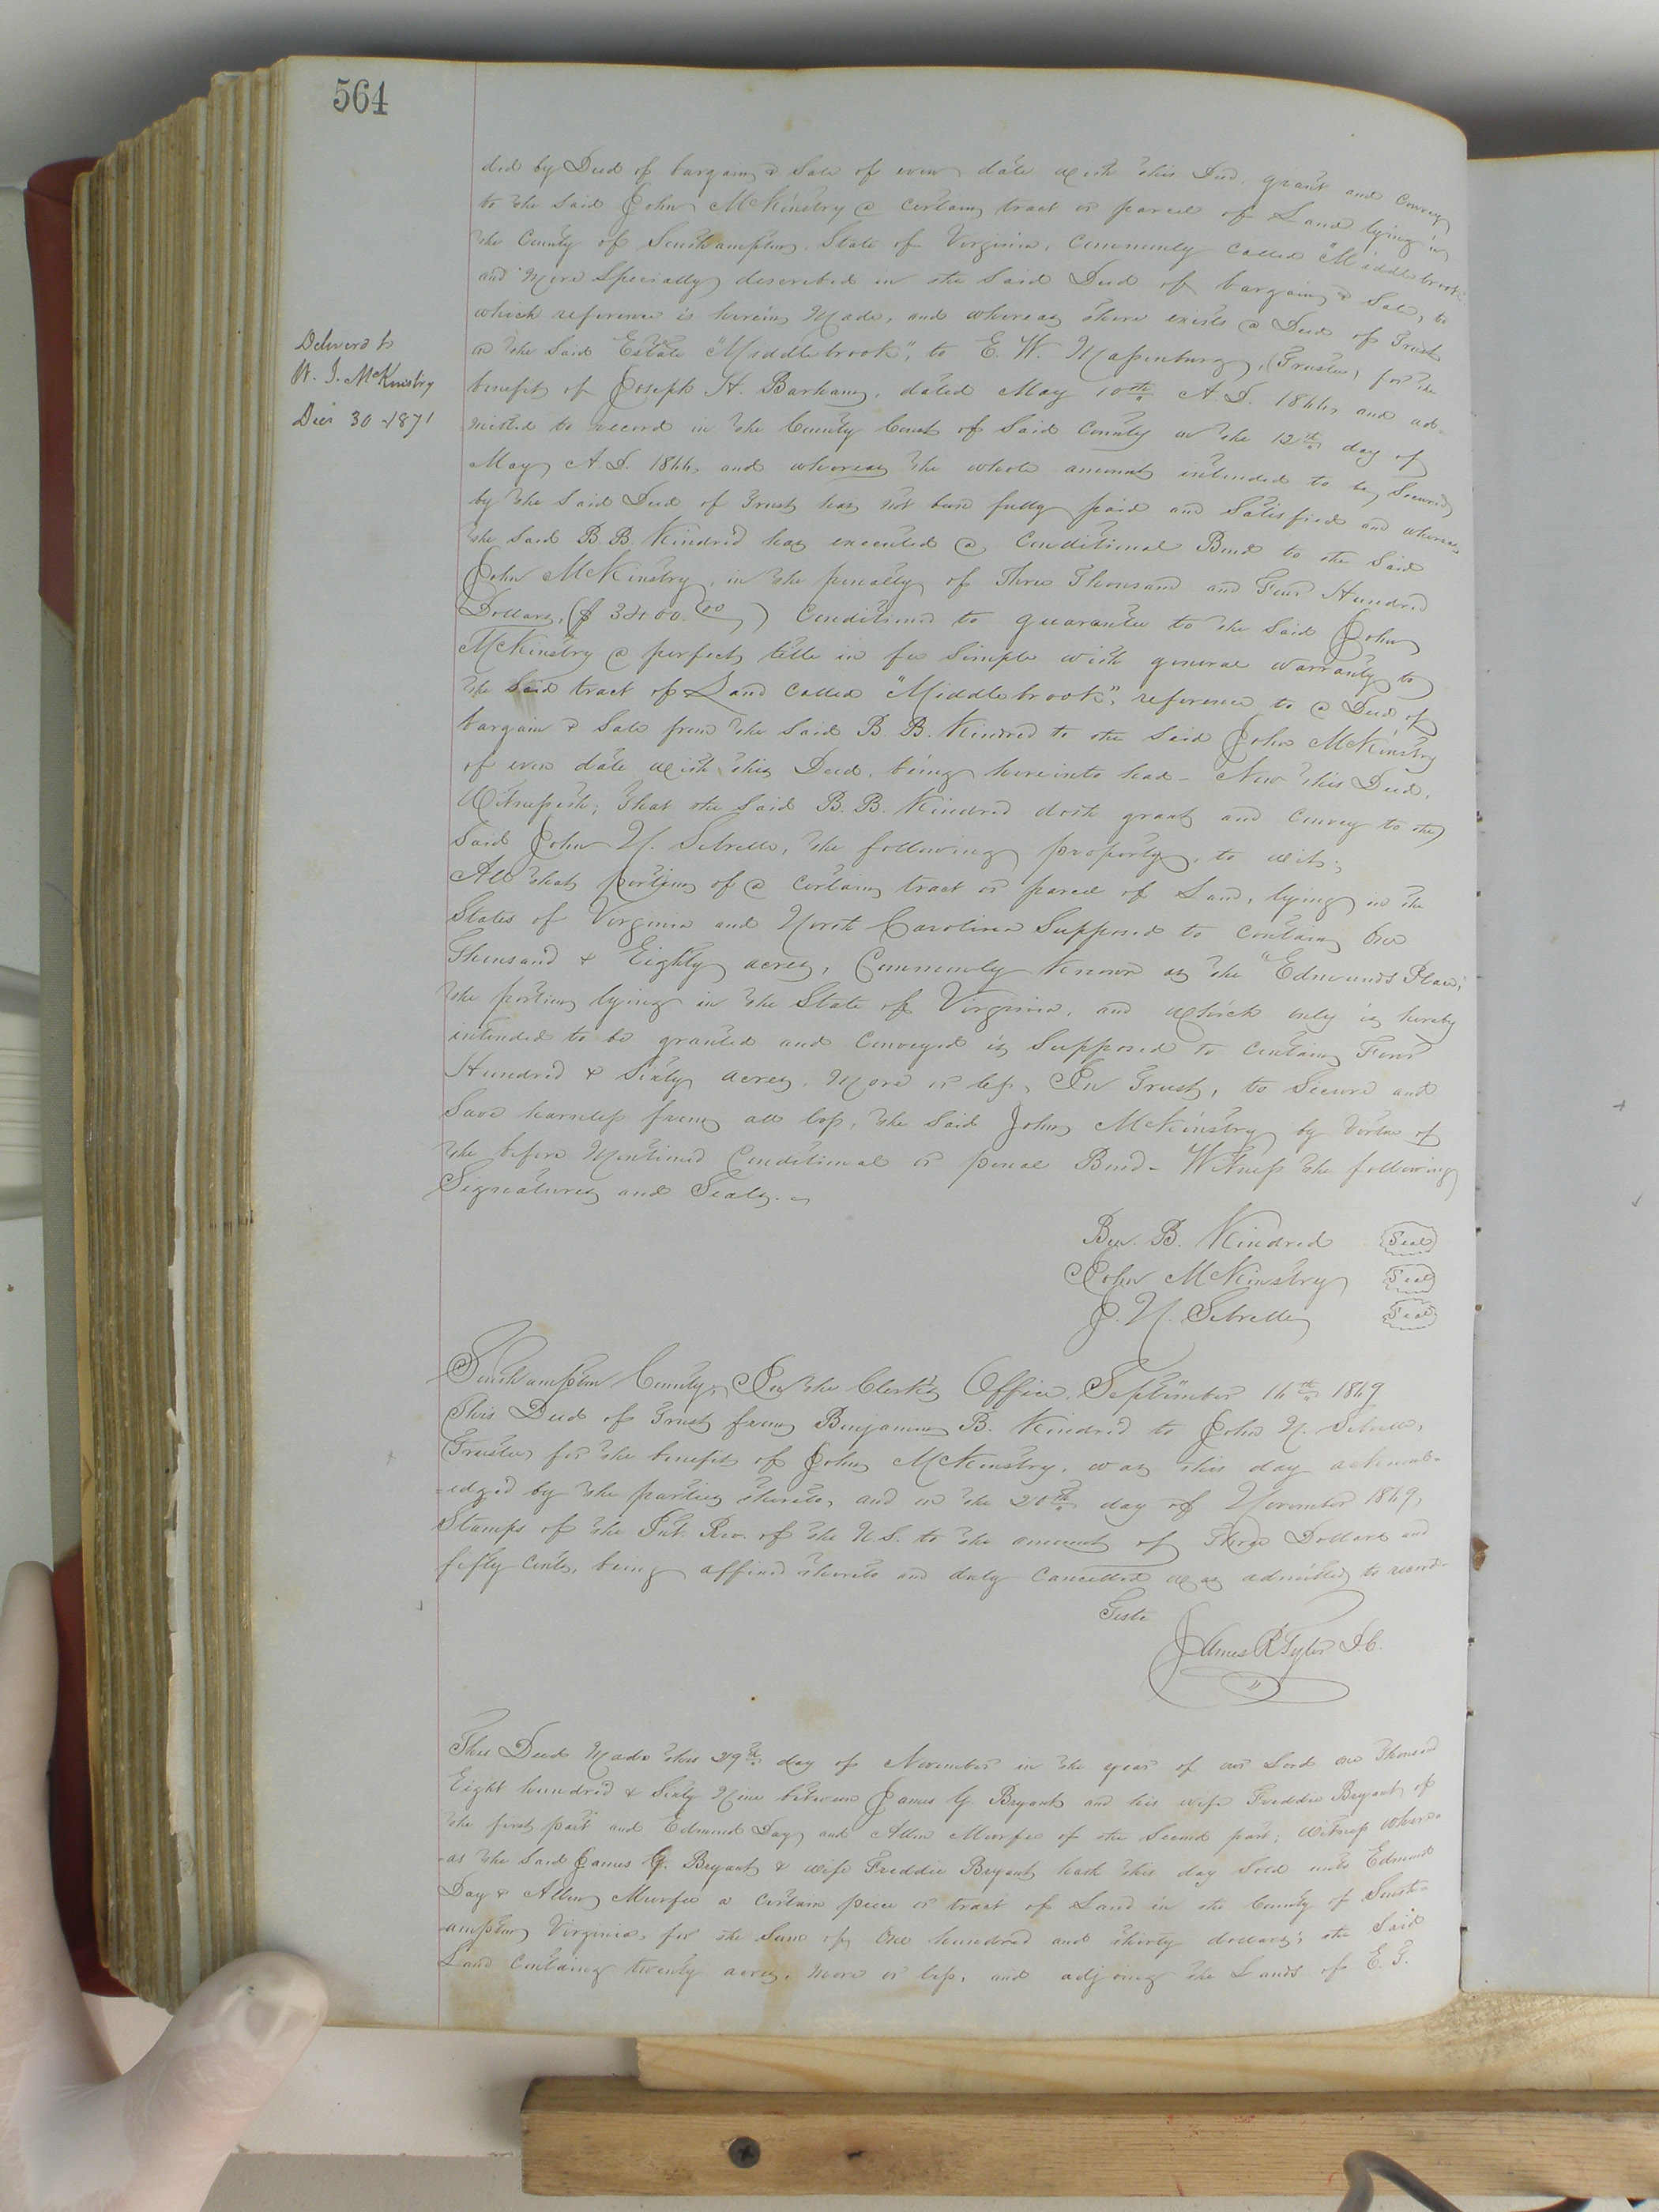 564
did by Deed of bargain & Sale of even date with this Deed, grant and convey
to the Said John McKinstry a certain tract or parcel of Land lying in
the County of Southampton, State of Virginia, Commonly called "Middlebrook"
and more Specially described in the Said Deed of bargain & Sale, to
which reference is herein Made, and whereas there exists a Deed of Trust
on the Said Estate "Middlebrook", to E. W. Massenburg, (Trustee) for the
benefit of Joseph H. Barham, dated May 10th A. D. 1866, and ad-
mitted to record in the County Court of Said County on the 12th day of
May A.D. 1866, and whereas the whole amount intended to be Secured
by the Said Deed of Trust has not been fully paid and Satisfied and whereas
the Said B. B. Kindred has executed a Conditional Bond to the Said
John McKinstry, in the penalty of Three Thousand and Four Hundred
Dollars, ($ 3400.00) Conditioned to guarantee to the Said John
McKinstry a perfect title in fee Simple with general warranty to
the Said tract of Land called "Middlebrook", reference to a Deed of
bargain & Sale from the Said B. B. Kindred to the Said John McKinstry
of even date with this Deed, being hereinto had - Now this Deed,
Witnesseth; That the Said B. B. Kindred doth grant and Convey to the
Said John N. Sebrell, the following property, to wit;
All that portion of a certain tract or parcel of Land, lying in the
States of Virginia and North Carolina Supposed to contain One
Thousand & Eighty acres, Commonly Known as the "Edmunds Place,"
the portion lying in the State of Virginia, and which only is hereby
intended to be granted and Conveyed is Supposed to contain Four
Hundred & Sixty acres, More or less, In Trust, to Secure and
Save harmless from all loss, the Said John McKinstry by Virtue of
the before Mentioned Conditional or penal Bond - Witness the following
Signatures and Seals.
Ben. B. Kindred Seal
John McKinstry Seal
J. N. Sebrell Seal
Southampton County; In the Clerk's Office, September 16th 1869
This Deed of Trust from Benjamin B. Kindred to John N. Sebrell,
Trustee for the benefit of John McKinstry, was this day acknowl-
-edged by the parties thereto, and on the 20th day of November 1869,
Stamps of the Int. Rev. of the U.S. to the amount of Three Dollars and
fifty cents, being affixed thereto and duly Cancelled was admitted to record-
Teste
James R Tyler D.C.
Delivered to
W. J. McKinstry
Decr 30 - 1871
This Deed Made this 29th day of November in the year of our Lord one Thousand
Eight hundred & Sixty Nine between James G. Bryant and his wife Freddie Bryant of
the first part and Edmund Day and Allen Murfee of the Second part; Witness Where-
-as the Said James G. Bryant & wife Freddie Bryant hath this day Sold unto Edmund
Day & Allen Murfee a certain piece or tract of Land in the County of South-
-ampton Virginia, for the Sum of One hundred and thirty dollars; the Said
Land Containg twenty acres, more or less, and adjoing the Lands of E. G.